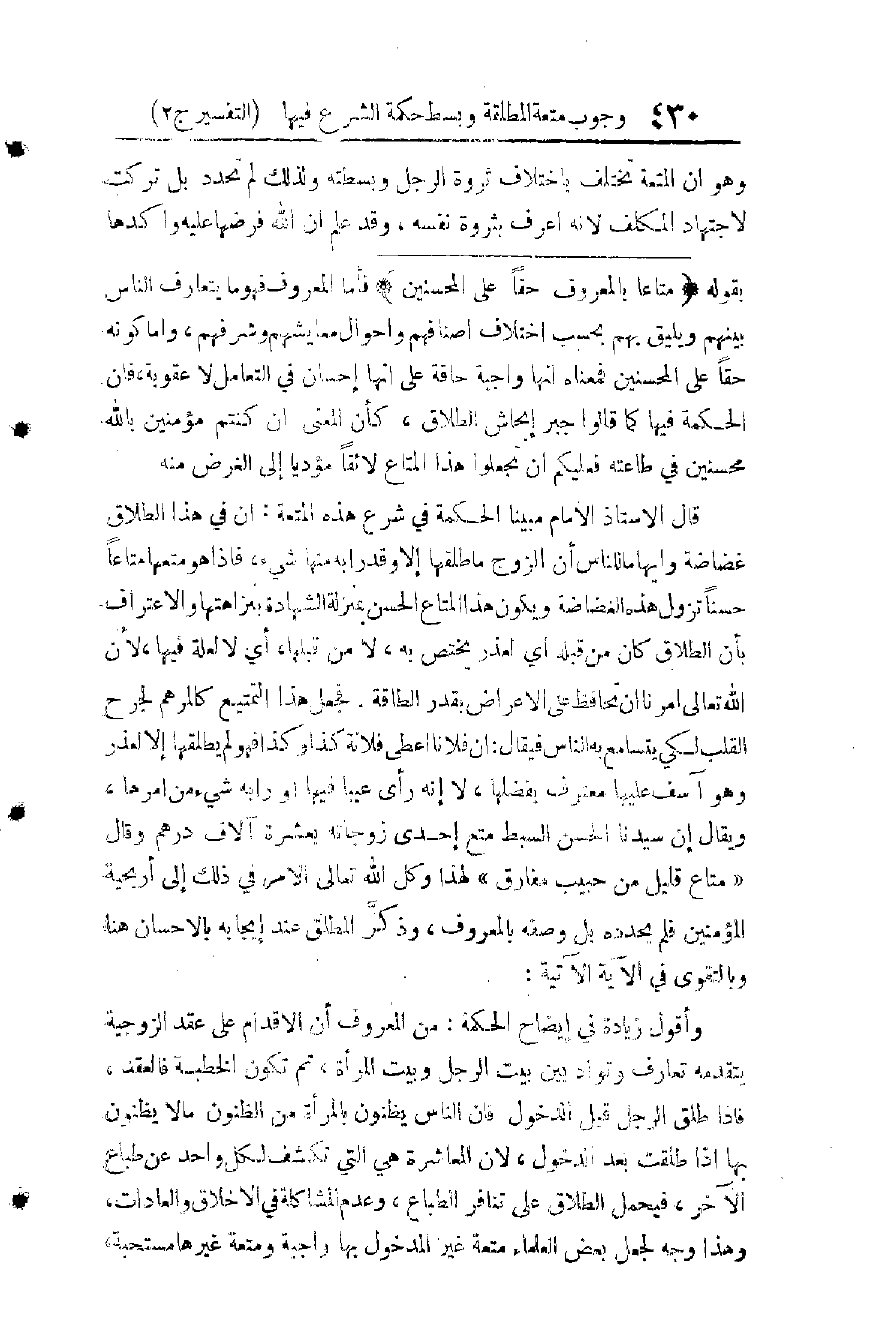 ٤٣٠ وجوب متعة المطلقة وبسط حكمة الشرع فيها (التفسير ج٢)
وهو ان المتعة تختلف باختلاف ثروة الرجل وبسطته ولذلك لم تحدد بل تركت
لاجتهاد المكلف لانه اعرف بثروة نفسه ، وقد علم ان الله فرضها عليه واكدها
بقوله ﴿ متاعا بالمعروف حقاً على المحسنين ﴾ فأما المعروف فهو ما يتعارف الناس
بينهم ويليق بهم بحسب اختلاف اصنافهم واحوال معايشهم وشرفهم ، واما كونه
حقاً على المحسنين فمعناه انها واجبة حاقة على انها إحسان في التعامل لا عقوبة، فان
الحكمة فيها كما قالوا جبر إيحاش الطلاق ، كأن المعنى ان كنتم مؤمنين بالله
محسنين في طاعته فعليكم ان تجعلوا هذا المتاع لائقاً مؤديا إلى الغرض منه
قال الاستاذ الامام مبينا الحكمة في شرع هذه المتعة : ان في هذا الطلاق
غضاضة وايهاما للناس أن الزوج ما طلقها إلا وقد رابه منها شيء ، فاذا هو متعها متاعاً
حسناً تزول هذه الغضاضة ويكون هذا المتاع الحسن بمنزلة الشهادة بنزاهتها والاعتراف
بأن الطلاق كان من قبله اي لعذر يختص به ، لا من قبلها، أي لا لعلة فيها ، لأن
الله تعالى امرنا ان نحافظ على الاعراض بقدر الطاقة . فجعل هذا التمتيع كالمرهم لجرح
القلب لكي يتسامع به الناس فيقال : ان فلانا اعطى فلانة كذا وكذا فهو لم يطلقها إلا لعذر
وهو آسف عليها معترف بفضلها ، لا إنه رأى عيبا فيها او رابه شيء من امرها ،
ويقال إن سيدنا الحسن السبط متع إحدى زوجاته بعشرة آلاف درهم وقال
« متاع قليل من حبيب مفارق » لهذا وكل الله تعالى الامر في ذلك إلى أريحية
المؤمنين فلم يحدده بل وصفه بالمعروف ، وذكَّر المطلق عند إيجابه بالاحسان هنا
وبالتقوى في الآية الآتية :
وأقول زيادة في إيضاح الحكمة : من المعروف أن الاقدام على عقد الزوجية
يتقدمه تعارف وتواد بين بيت الرجل وبيت المرأة ، ثم تكون الخطبة فالعقد ،
فاذا طلق الرجل قبل الدخول فان الناس يظنون بالمرأة من الظنون مالا يظنون
بها اذا طلقت بعد الدخول ، لان المعاشرة هي التي تكشف لكل واحد عن طباع
الآخر ، فيحمل الطلاق على تنافر الطباع ، وعدم المشاكلة في الاخلاق والعادات،
وهذا وجه لجعل بعض العلماء متعة غير المدخول بها واجبة ومتعة غيرها مستحبة،